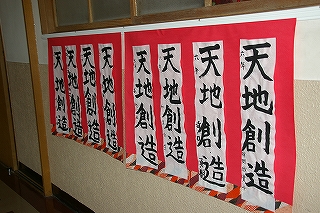 天地創造
天地創造
天地創造
天地創造
天地創造
天地創造
天地創造
天地創造